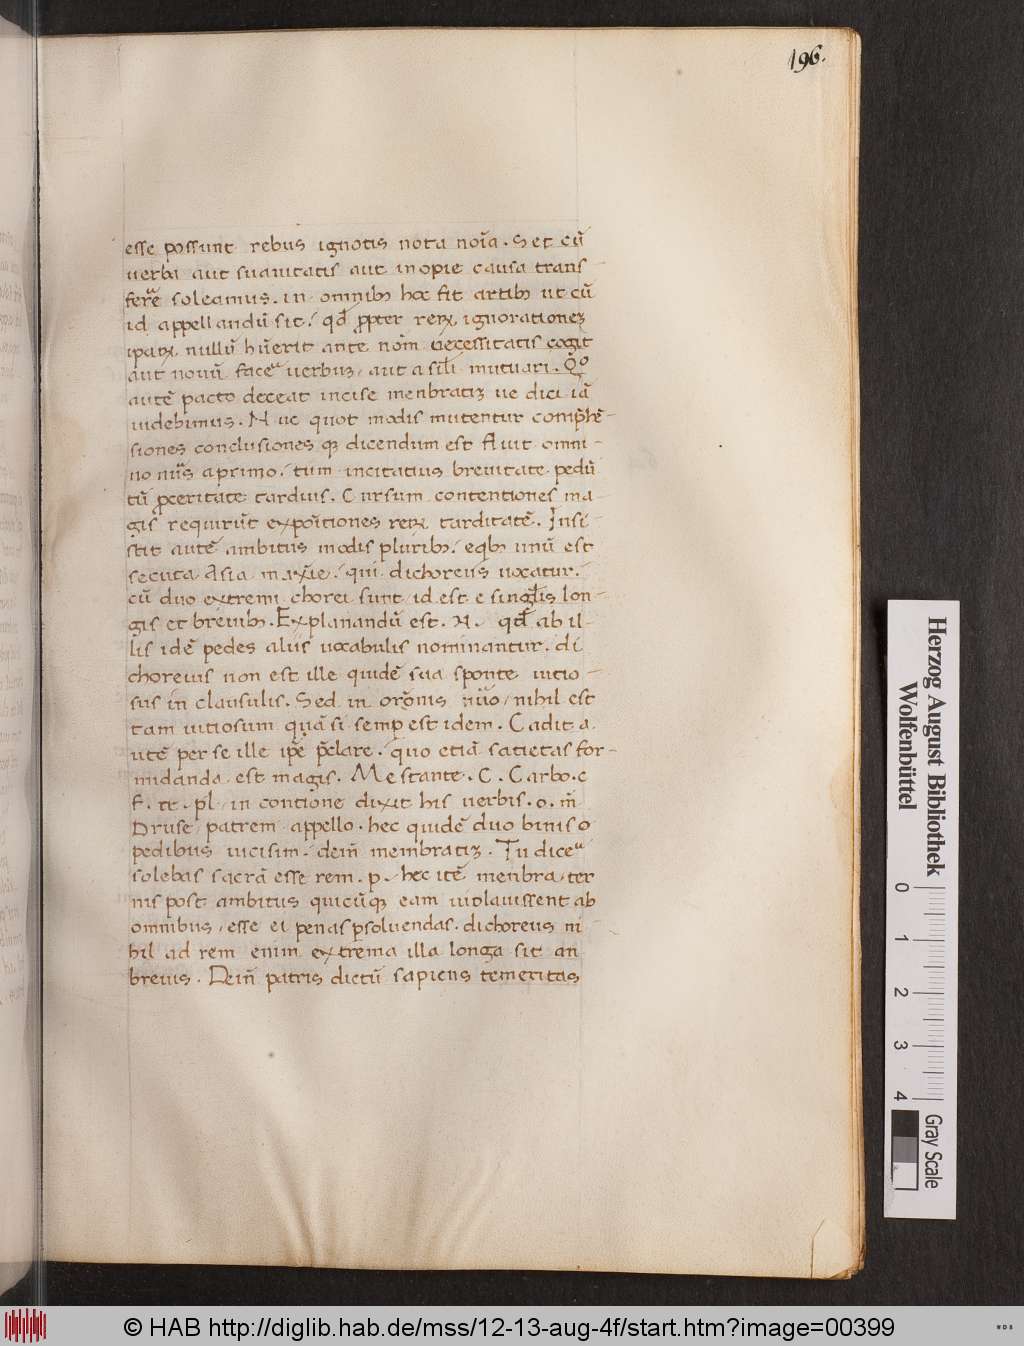 196.
esse possunt rebus ignotis nota noı̄a. Set cū
uerba aut suauitatis aut inopie causa trans
ferr̄e soleamus. in omnibꝫ hoc fit artibꝫ ut cū
id appellandū sit / qd̄ ꝓpter reꝝ ignorationeꝫ
ipaꝝ nullū hūerit ante nōm necessitatis cogit
aut nouū facᵉ uerbuꝫ / aut a sil̄i mutuari. Q̊o
autē pacto deceat incise menbratiꝫ ue dici iā
uidebimus. Nuc quot modis mutentur comp̄hē
siones conclusiones qꝫ dicendum est Fluit omni
no nūs a primo / tum incitatius breuitate pedū
tū ꝓceritate tardius. Cursum contentiones ma
gis requirūt expoı̄tiones reꝝ tarditatē. Insi
stit autē ambitus modis pluribꝫ / eqbꝫ unū est
secuta Asia maxīe / qui dichoreus uocatur /
cū duo extremi chorei sunt / id est e singl̄is lon
gis et breuibꝫ. Explanandū est. N. qd̄ ab il
lis idē pedes aliis uocabulis nominantur. di
choreus non est ille quidē sua sponte uitio
sus in clausulis. Sed in orōnis nūo / nihil est
tam uitiosum quā si semp̄ est idem. Cadit a
utē per se ille ip̄e p̄clare / quo etiā satietas for
midanda est magis. Me stante. C. Carbo. c
F. tt. pl / in contione dixit his uerbis. o. m̄
Druse / patrem appello. hec quidē duo binis o
pedibus incisim / dein̄ membratiꝫ. Tu dicᵉ
solebas sacrā esse rem. p. / hec itē menbra / ter
nis post ambitus quicūqꝫ eam uiolauissent ab
omnibus / esse ei penas ꝑsoluendas. dichoreus ni
hil ad rem enim extrema illa longa sit an
breuis. Dein̄ patris dictū sapiens temeritas
Herzog August Bibliothek
Wolfenbüttel
0 1 2 3 4
Gray Scale
© HAB http://diglib.hab.de/mss/12-13-aug-4f/start.htm?image=00399